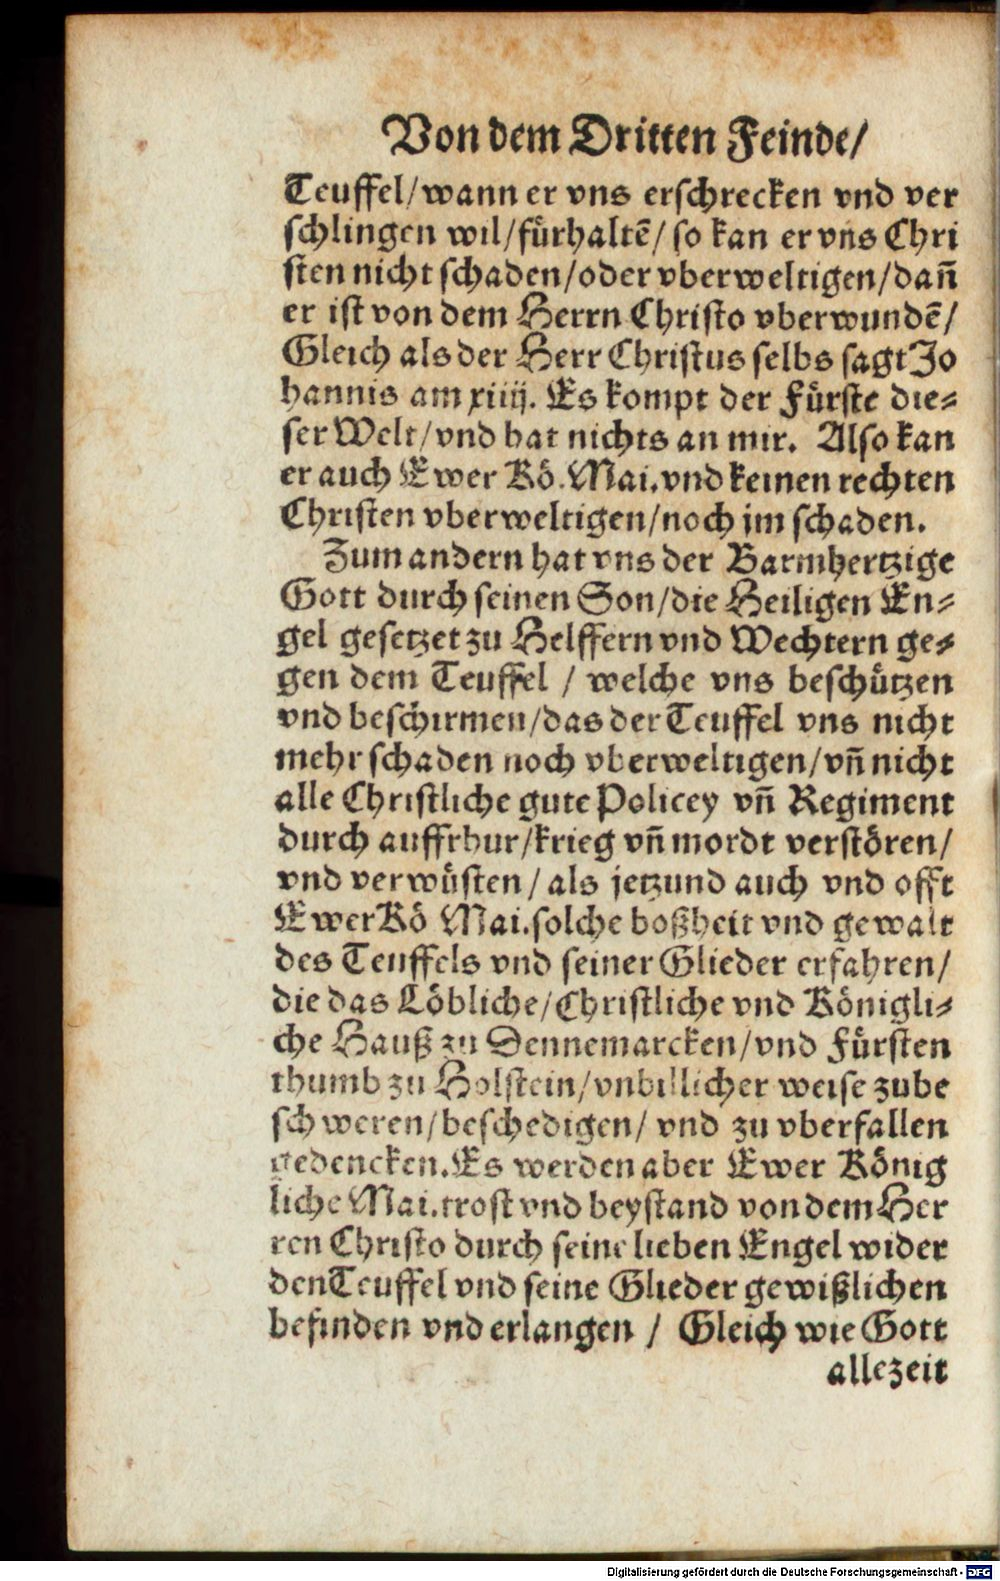 Von dem Dritten Feinde/
Teuffel/wann er vns erschrecken vnd ver
schlingen wil/fürhaltē/so kan er vns Chri
sten nicht schaden/oder vberweltigen/dañ
er ist von dem Herrn Christo vberwundē/
Gleich als der Herr Christus selbs sagt Jo
hannis am xiiij. Es kompt der Fürste die⸗
ser Welt/vnd hat nichts an mir. Also kan
er auch Ewer Kö. Mai. vnd keinen rechten
Christen vberweltigen/noch jm schaden.
Zum andern hat vns der Barmhertzige
Gott durch seinen Son/die Heiligen En⸗
gel gesetzet zu Helffern vnd Wechtern ge⸗
gen dem Teuffel / welche vns beschützen
vnd beschirmen/das der Teuffel vns nicht
mehr schaden noch vberweltigen/vñ nicht
alle Christliche gute Policey vñ Regiment
durch auffrhur/krieg vñ mordt verstören/
vnd verwüsten/ als jetzund auch vnd offt
Ewer Kö Mai. solche boßheit vnd gewalt
des Teuffels vnd seiner Glieder erfahren/
die das Löbliche/Christliche vnd Königli⸗
che Hauß zu Dennemarcken/vnd Fürsten
thumb zu Holstein/vnbillicher weise zube
schweren/beschedigen/ vnd zu vberfallen
gedencken. Es werden aber Ewer König
liche Mai. trost vnd beystand von dem Her
ren Christo durch seine lieben Engel wider
den Teuffel vnd seine Glieder gewißlichen
befinden vnd erlangen / Gleich wie Gott
allezeit
Digitalisierung gefördert durch die Deutsche Forschungsgemeinschaft - DFG